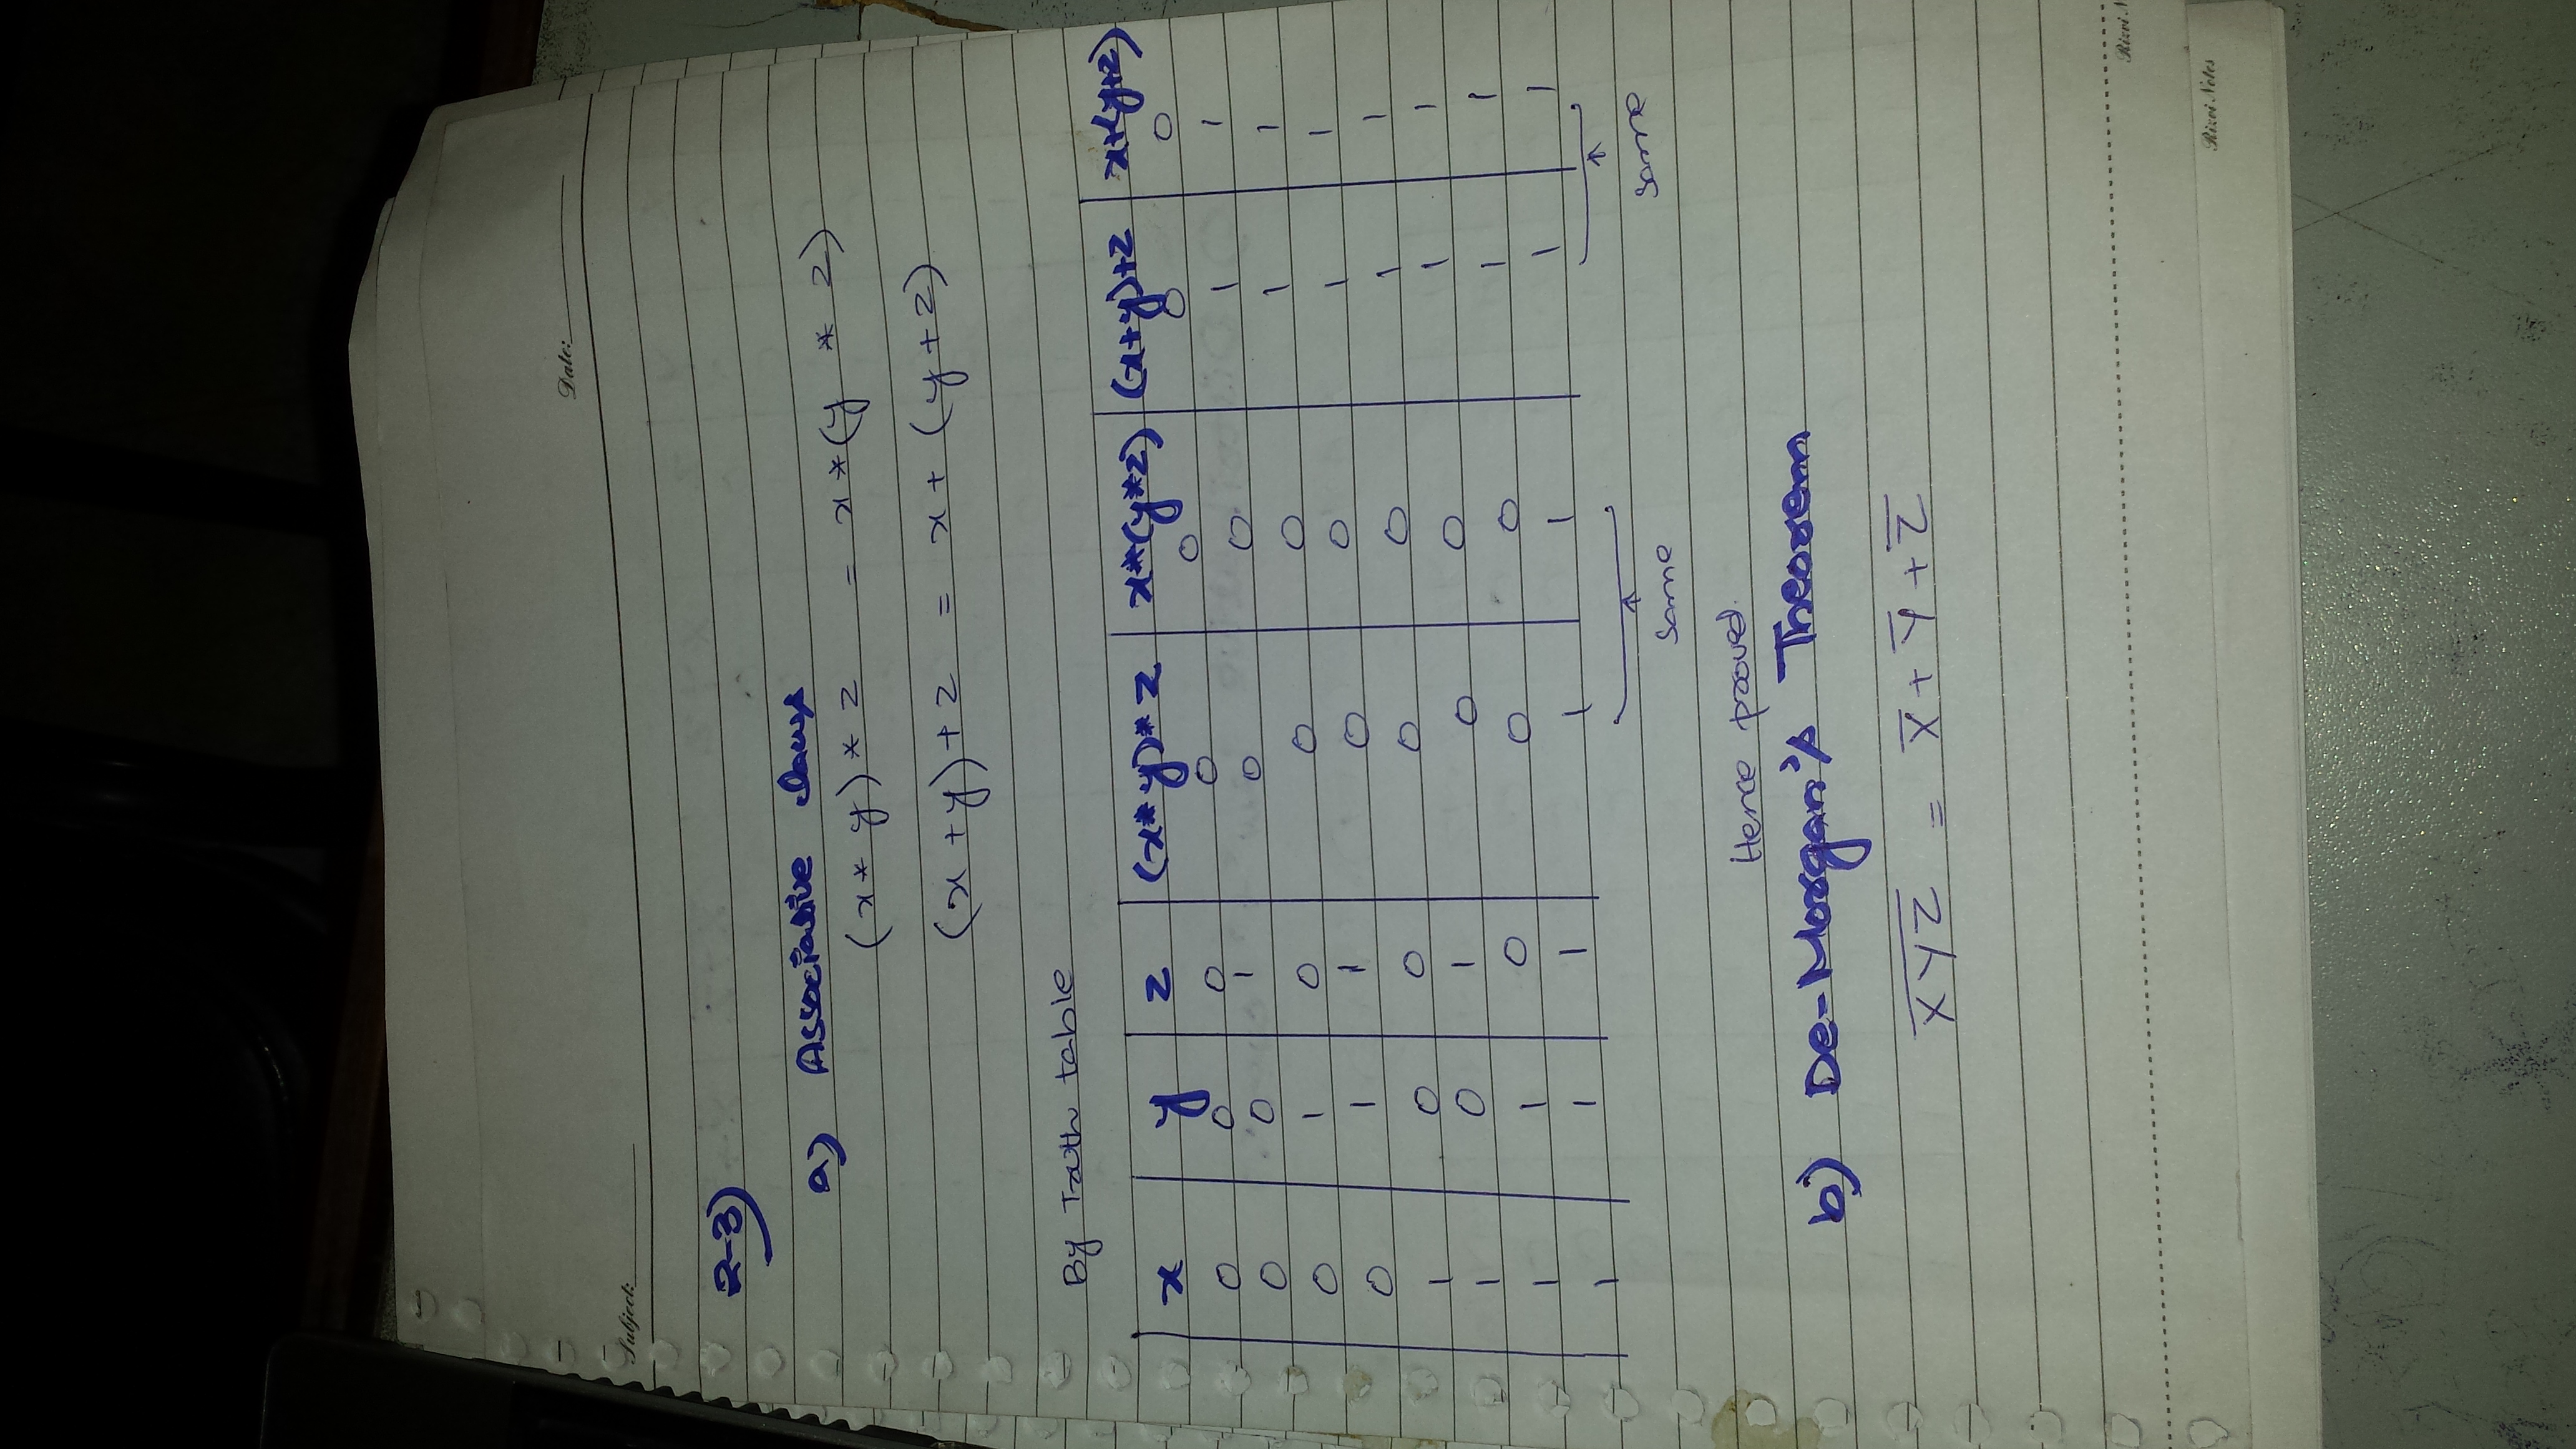 Subject:
Date:
2-3)
a) Associative laws
(x * y) * z = x * (y * z)
(x + y) + z = x + (y + z)
By Truth table
x y z (x*y)*z x*(y*z) (x+y)+z x+(y+z)
0 0 0 0 0 0 0
0 0 1 0 0 1 1
0 1 0 0 0 1 1
0 1 1 0 0 1 1
1 0 0 0 0 1 1
1 0 1 0 0 1 1
1 1 0 0 0 1 1
1 1 1 1 1 1 1
same same
Hence proved.
b) De-Morgan's Theorem
X̅Y̅Z̅ = X̅ + Y̅ + Z̅
Rizvi Notes
Rizvi N